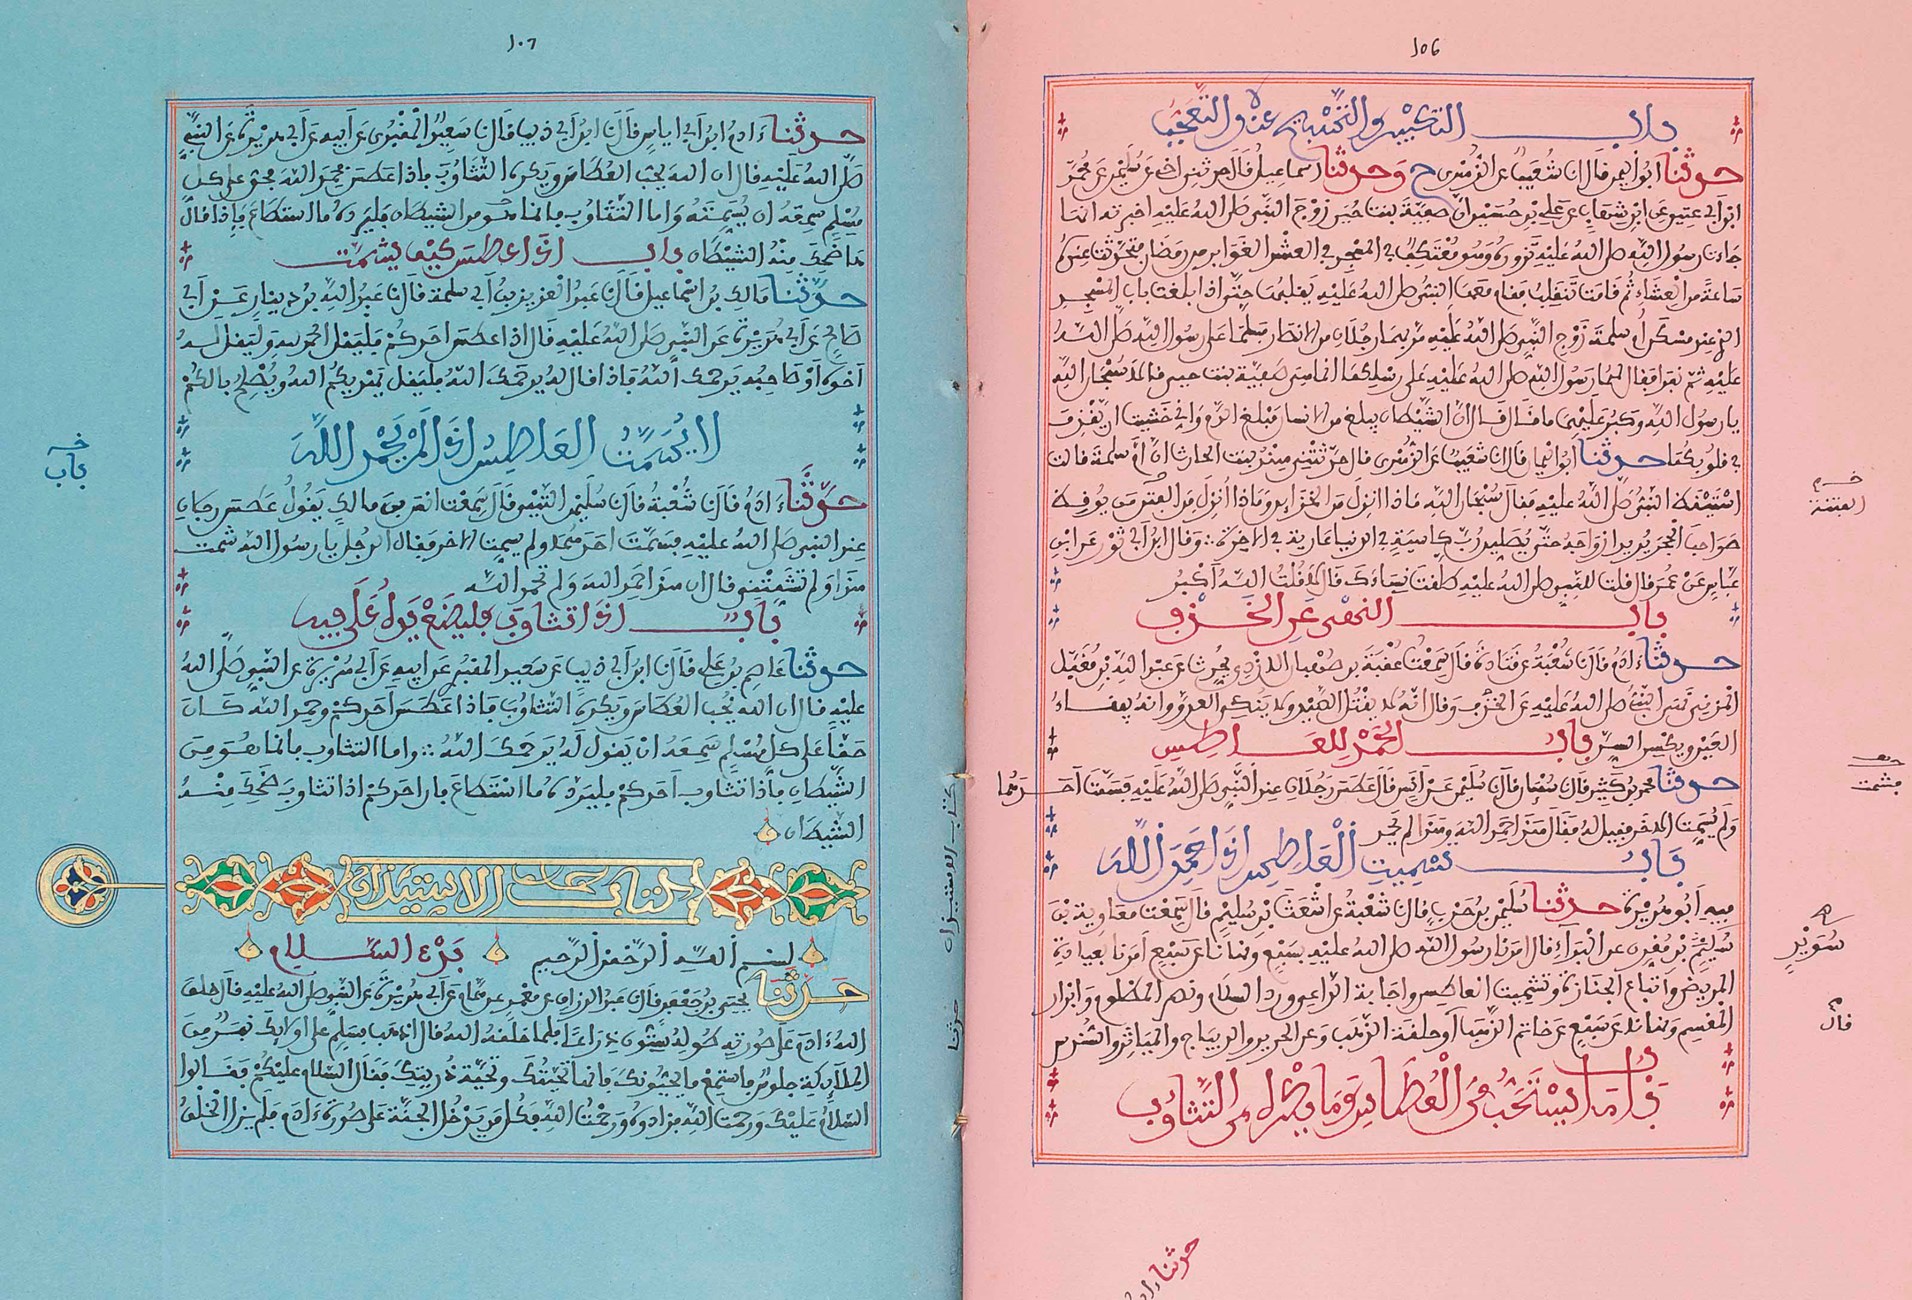 106
باب التكبير والتسبيح عند التعجب
حدثنا ابو اليمن قال انا شعيب عن الزهري ح وحدثنا اسماعيل قال حدثني اخي عن سليمن عن محمد
ابن ابي عتيق عن ابن شهاب عن علي بن حسين ان صفية بنت حيي زوج النبي صلى الله عليه اخبرته انها
جاءت رسول الله صلى الله عليه تزوره وهو معتكف في المسجد في العشر الغوابر من رمضان فتحدثت عنده
ساعة من العشاء ثم قامت تنقلب فقام معها النبي صلى الله عليه يقلبها حتى اذا بلغت باب المسجد
الذي عند مسكن ام سلمة زوج النبي صلى الله عليه مر بهما رجلان من الانصار فسلما على رسول الله صلى الله
عليه ثم نفذا فقال لهما رسول الله صلى الله عليه على رسلكما انما هي صفية بنت حيي قالا سبحان الله
يا رسول الله وكبر عليهما ما قال قال ان الشيطان يبلغ من الانسان مبلغ الدم واني خشيت ان يقذف
في قلوبكما حدثنا ابو اليمان قال انا شعيب عن الزهري قال حدثتني هند بنت الحارث ان ام سلمة قالت
استيقظ النبي صلى الله عليه فقال سبحان الله ماذا انزل من الخزاين وماذا انزل من الفتن من يوقظ
صواحب الحجر يريد ازواجه حتى يصلين رب كاسية في الدنيا عارية في الاخرة وقال ابن ابي ثور عن ابن
عباس عن عمر قال قلت للنبي صلى الله عليه طلقت نساءك قال لا قلت الله أكبر
باب النهي عن الخذف
حدثنا ءادم قال نا شعبة عن قتادة قال سمعت عقبة بن صهبان الازدي يحدث عن عبد الله بن مغفل
المزني نهى النبي صلى الله عليه عن الخذف وقال انه لا يقتل الصيد ولا ينكى العدو وانه يفقاء
العين ويكسر السن باب الحمد للعاطس
حدثنا محمد بن كثير قال نا سفيان قال نا سليمن عن أنس قال عطس رجلان عند النبي صلى الله عليه فشمت أحدهما
ولم يشمت الاخر فقيل له فقال هذا حمد الله وهذا لم يحمد
باب تشميت العاطس اذا حمد الله
فيه أبو هريرة حدثنا سليمن بن حرب قال نا شعبة عن اشعث بن سليم قال سمعت معاوية بن
سويد بن مقرن عن البراء قال امرنا رسول الله صلى الله عليه بسبع ونهانا عن سبع أمرنا بعيادة
المريض واتباع الجنازة وتشميت العاطس واجابة الداعي ورد السلام ونصر المظلوم وابرار
المقسم ونهانا عن سبع عن خاتم الذهب أو حلقة الذهب وعن الحرير والديباج والمياثر والسندس
باب ما يستحب من العطاس وما يكره من التثاؤب
الفتنة
فشمت
سويد
قال
حدثنا
107
حدثنا ءادم ابن ابي اياس قال نا ابن أبي ذيب قال نا سعيد المقبري عن أبيه عن أبي هريرة عن النبي
صلى الله عليه قال ان الله يحب العطاس ويكره التثاوب فاذا عطس فحمد الله فحق على كل
مسلم سمعه ان يشمته واما التثاوب فانما هو من الشيطان فليرده ما استطاع فإذا قال
ها ضحك منه الشيطان باب اذا عطس كيف يشمت
حدثنا مالك بن اسماعيل قال نا عبد العزيز بن أبي سلمة قال نا عبد الله بن دينار عن أبي
صالح عن أبي هريرة عن النبي صلى الله عليه قال اذا عطس احدكم فليقل الحمد لله وليقل له
أخوه أو صاحبه يرحمك الله فاذا قال له يرحمك الله فليقل يهديكم الله ويصلح بالكم
لا يشمت العاطس اذا لم يحمد الله
حدثنا ءادم قال نا شعبة قال نا سليمن التيمي قال سمعت انس بن مالك يقول عطس رجلان
عند النبي صلى الله عليه فشمت احدهما ولم يشمت الاخر فقال الرجل يا رسول الله شمت
هذا ولم تشمتني قال ان هذا حمد الله ولم تحمد الله
باب اذا تثاوب فليضع يده على فيه
حدثنا عاصم بن علي قال نا ابن أبي ذيب عن سعيد المقبري عن ابيه عن أبي هريرة عن النبي صلى الله
عليه قال ان الله يحب العطاس ويكره التثاوب فاذا عطس أحدكم وحمد الله كان
حقا على كل مسلم سمعه ان يقول له يرحمك الله واما التثاوب فانما هو من
الشيطان فاذا تثاوب أحدكم فليرده ما استطاع فان احدكم اذا تثاوب ضحك منه
الشيطان
كتاب الاستيذان
بسم الله الرحمن الرحيم بدء السلام
حدثنا يحيى بن جعفر قال نا عبد الرزاق عن معمر عن همام عن أبي هريرة عن النبي صلى الله عليه قال خلق
الله ءادم على صورته طوله ستون ذراعا فلما خلقه الله قال اذهب سلم على اولايك نفر من
الملايكة جلوس فاستمع ما يحيونك فانها تحيتك وتحية ذريتك فقال السلام عليكم فقالوا
السلام عليك ورحمت الله فزادوه ورحمت الله فكل من يدخل الجنة على صورة ءادم فلم يزل الخلق
باب
كتاب الاستيذان
حدثنا